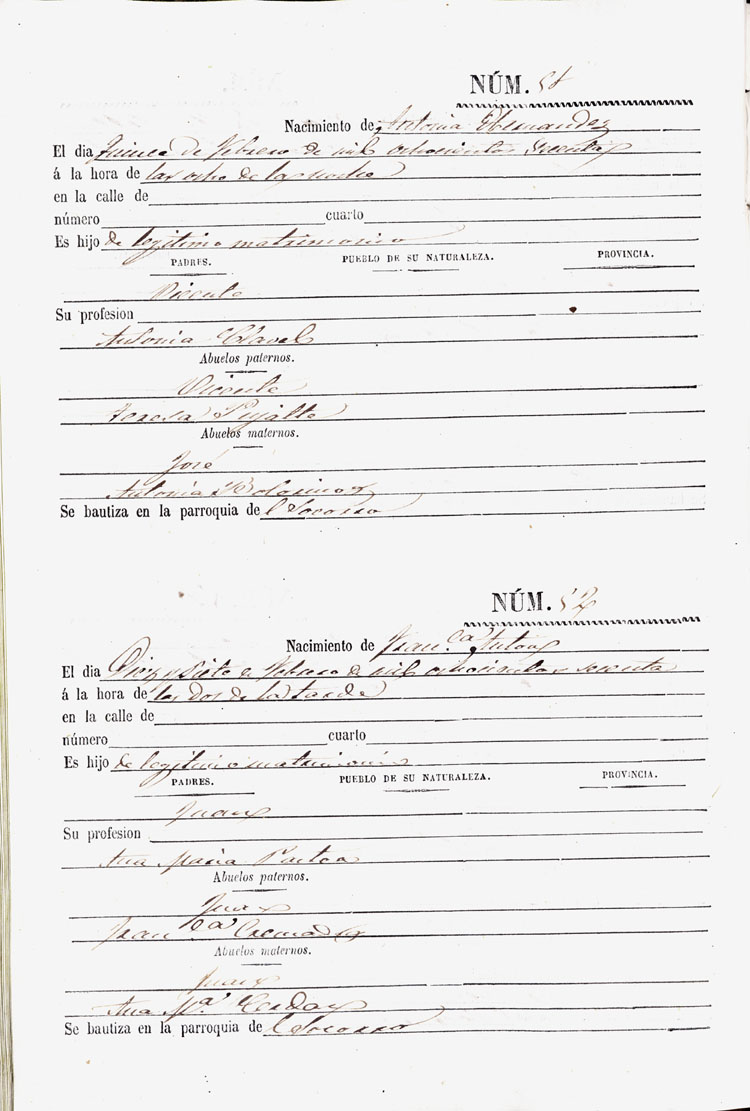 NÚM. 51
Nacimiento de Antonia Hernandez
El dia Quince de Febrero de mil ochocientos secenta
á la hora de las ocho de la noche
en la calle de
número cuarto
Es hijo de legitimo matrimonio
PADRES. PUEBLO DE SU NATURALEZA. PROVINCIA.
Vicente
Su profesion
Antonia Clavel
Abuelos paternos.
Vicente
Teresa Pujalte
Abuelos maternos.
José
Antonia
Se bautiza en la parroquia del Socorro
NÚM. 52
Nacimiento de Fran.ca Anton
El dia Diez y Siete de Febrero de mil ochocientos secenta
á la hora de las Dos de la tarde
en la calle de
número cuarto
Es hijo de legitimo matrimonio
PADRES. PUEBLO DE SU NATURALEZA. PROVINCIA.
Juan
Su profesion
Ana Maria
Abuelos paternos.
Juan
Fran.ca
Abuelos maternos.
Juan
Ana M.a Cerdan
Se bautiza en la parroquia de l Socorro